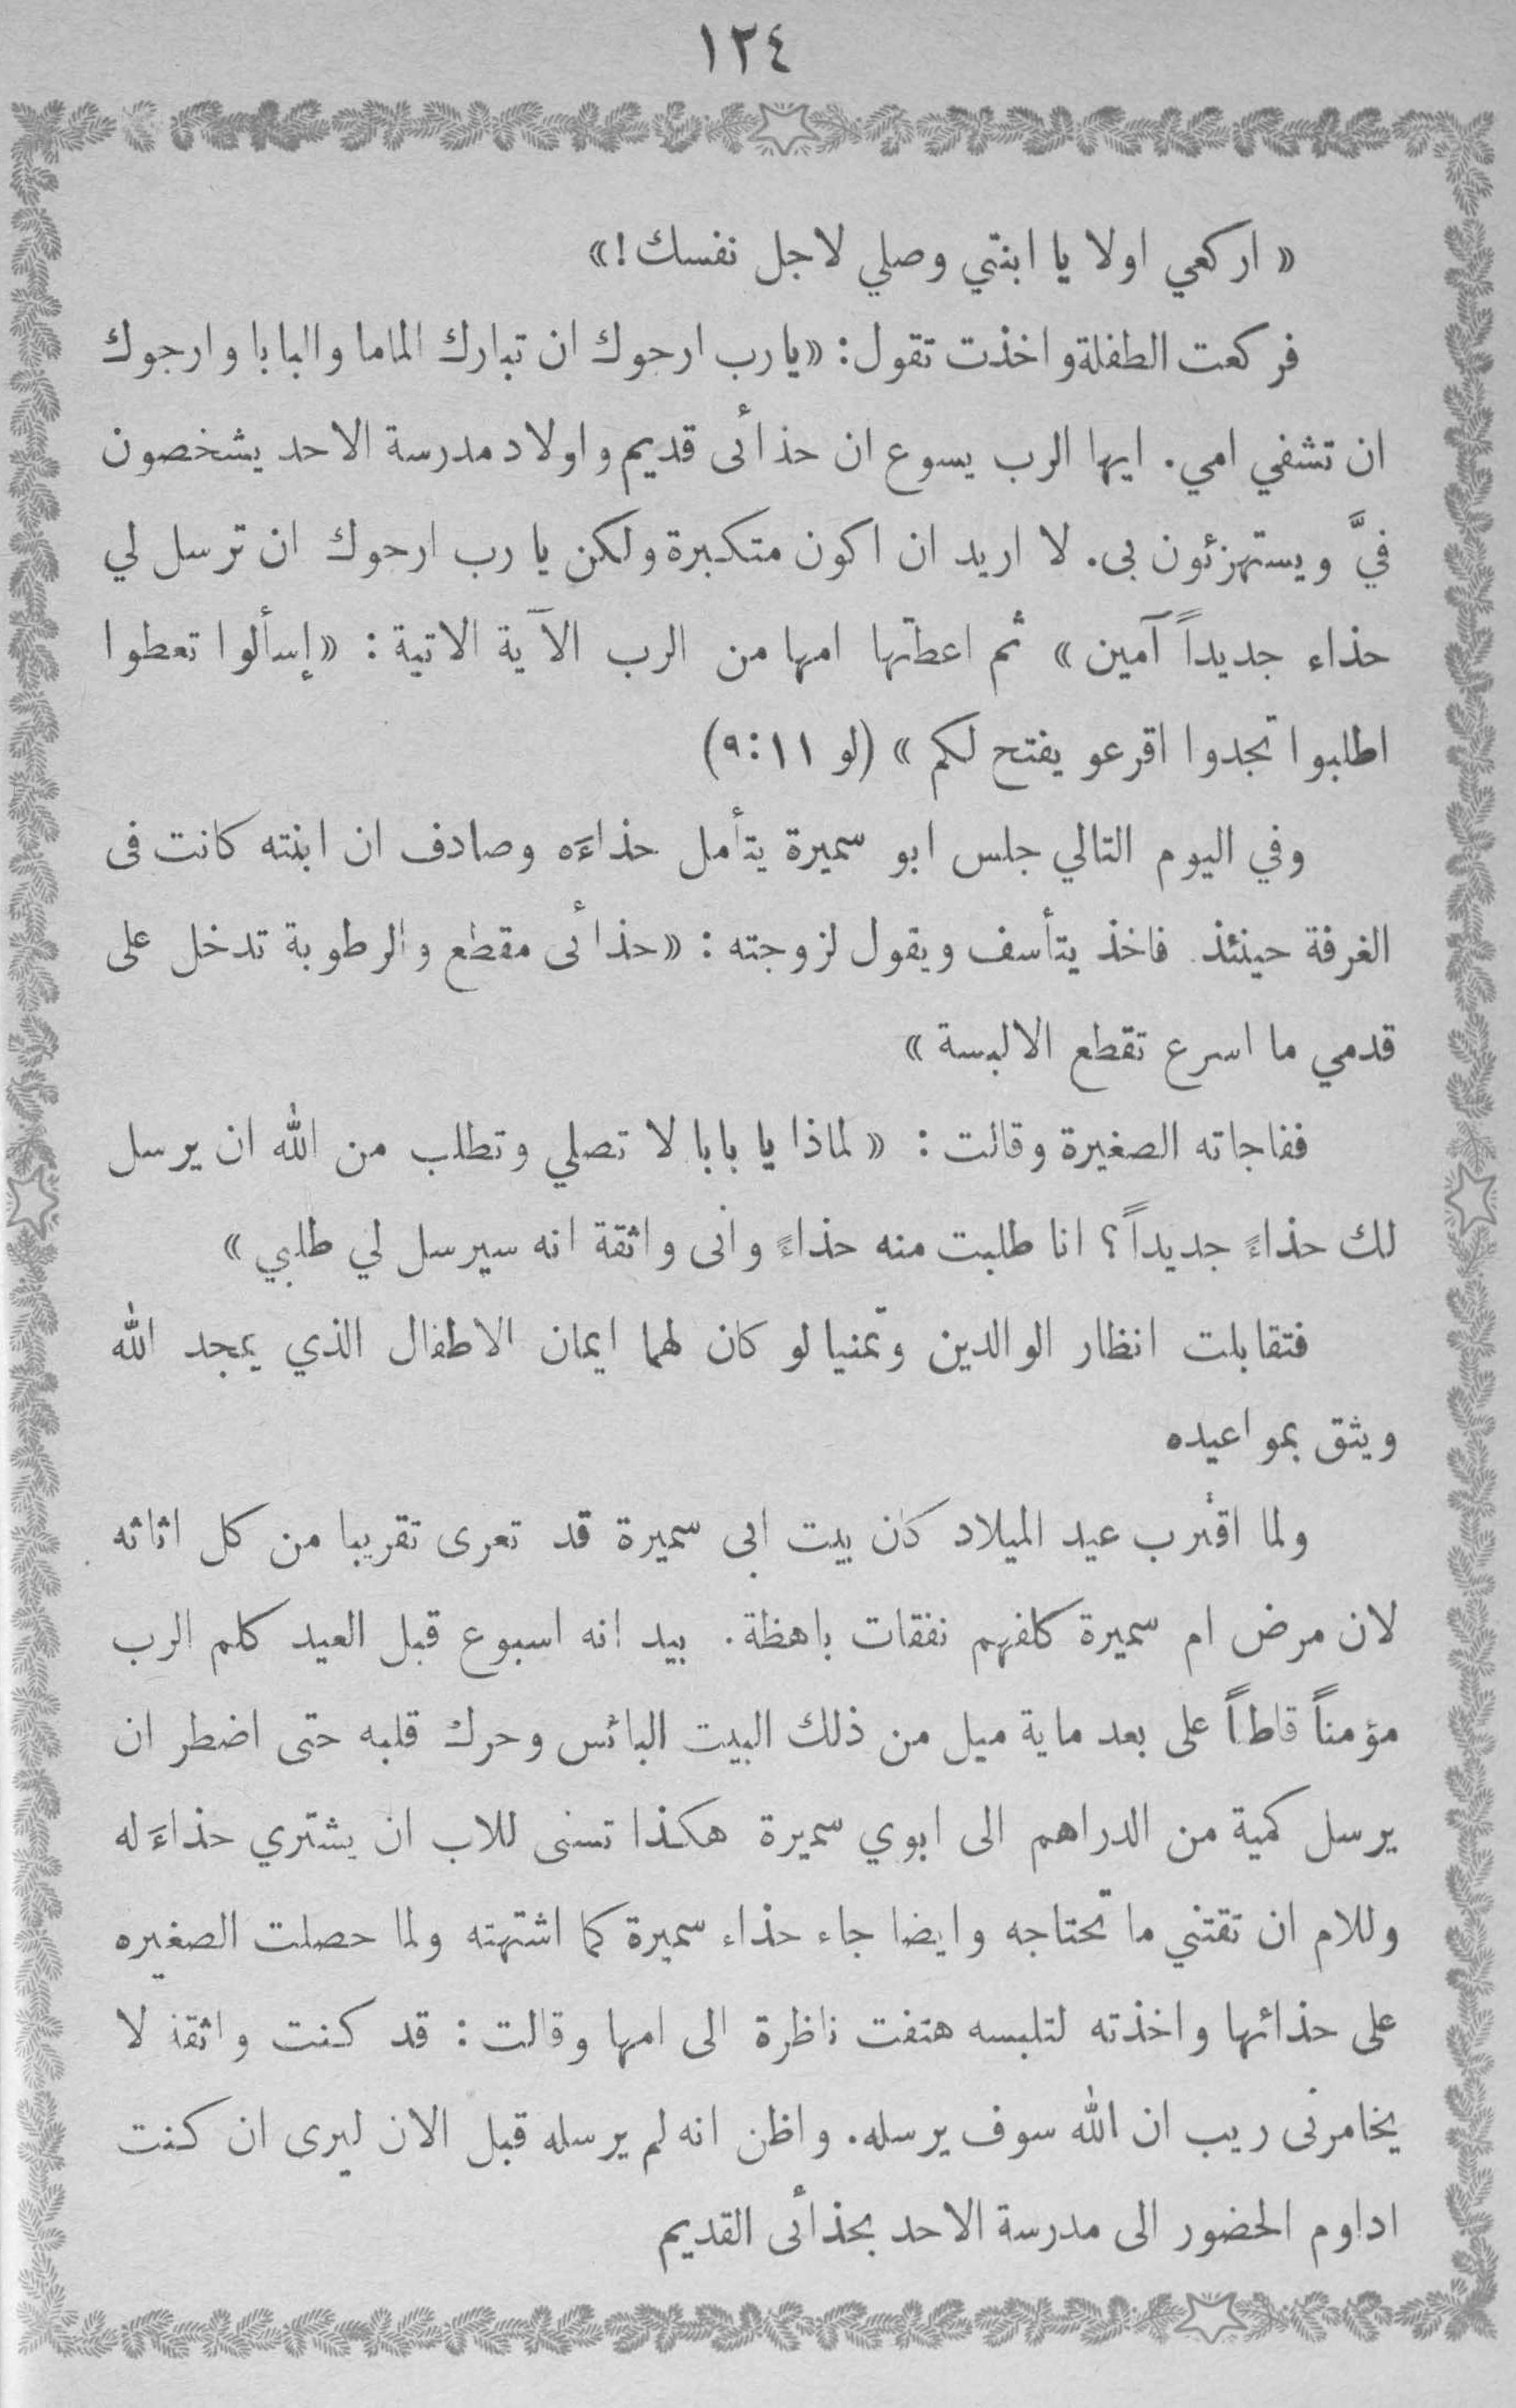 ١٢٤
« اركعي اولا يا ابنتي وصلي لاجل نفسك!»
فركعت الطفلة واخذت تقول: «يارب ارجوك ان تبارك الماما والبابا وارجوك
ان تشفي امي. ايها الرب يسوع ان حذأئى قديم واولاد مدرسة الاحد يشخصون
فيَّ ويستهزئون بى. لا اريد ان اكون متكبرة ولكن يا رب ارجوك ان ترسل لي
حذاء جديداً آمين» ثم اعطتها امها من الرب الآية الاتية: «إسألوا تعطوا
اطلبوا تجدوا اقرعو يفتح لكم» (لو ١١:٩)
وفي اليوم التالي جلس ابو سميرة يتأمل حذاءَه وصادف ان ابنته كانت فى
الغرفة حينئذ. فاخذ يتأسف ويقول لزوجته: «حذأئى مقطع والرطوبة تدخل على
قدمي ما اسرع تقطع الالبسة»
ففاجاته الصغيرة وقالت: «لماذا يا بابا لا تصلي وتطلب من الله ان يرسل
لك حذاءً جديداً؟ انا طلبت منه حذاءً وانى واثقة انه سيرسل لي طلبي»
فتقابلت انظار الوالدين وتمنيا لو كان لهما ايمان الاطفال الذي يمجد الله
ويثق بمواعيده
ولما اقترب عيد الميلاد كان بيت ابى سميرة قد تعرى تقريبا من كل اثاثه
لان مرض ام سميرة كلفهم نفقات باهظة. بيد انه اسبوع قبل العيد كلم الرب
مؤمناً قاطاً على بعد ماية ميل من ذلك البيت البائس وحرك قلبه حتى اضطر ان
يرسل كمية من الدراهم الى ابوي سميرة هكذا تسنى للاب ان يشتري حذاءَ له
وللام ان تقتني ما تحتاجه وايضا جاء حذاء سميرة كما اشتهته ولما حصلت الصغيره
على حذائها واخذته لتلبسه هتفت ناظرة الى امها وقالت: قد كنت واثقة لا
يخامرنى ريب ان الله سوف يرسله. واظن انه لم يرسله قبل الان ليرى ان كنت
اداوم الحضور الى مدرسة الاحد بحذأئى القديم